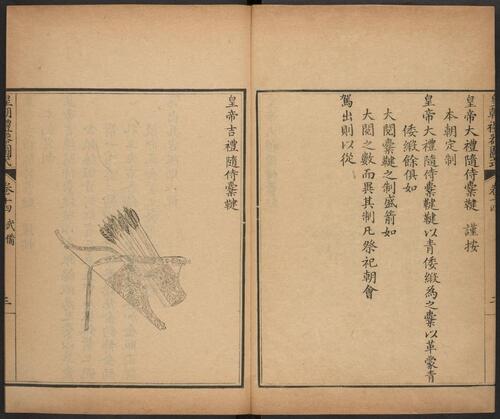 皇帝大禮隨侍櫜鞬 謹按
本朝定制
皇帝大禮隨侍櫜鞬鞬以青倭緞為之櫜以革蒙青
倭緞餘俱如
大閱櫜鞬之制盛箭如
大閱之數而異其制凡祭祀朝會
駕出則以從
皇帝吉禮隨侍櫜鞬
皇朝禮器圖式 卷十四 武備 三